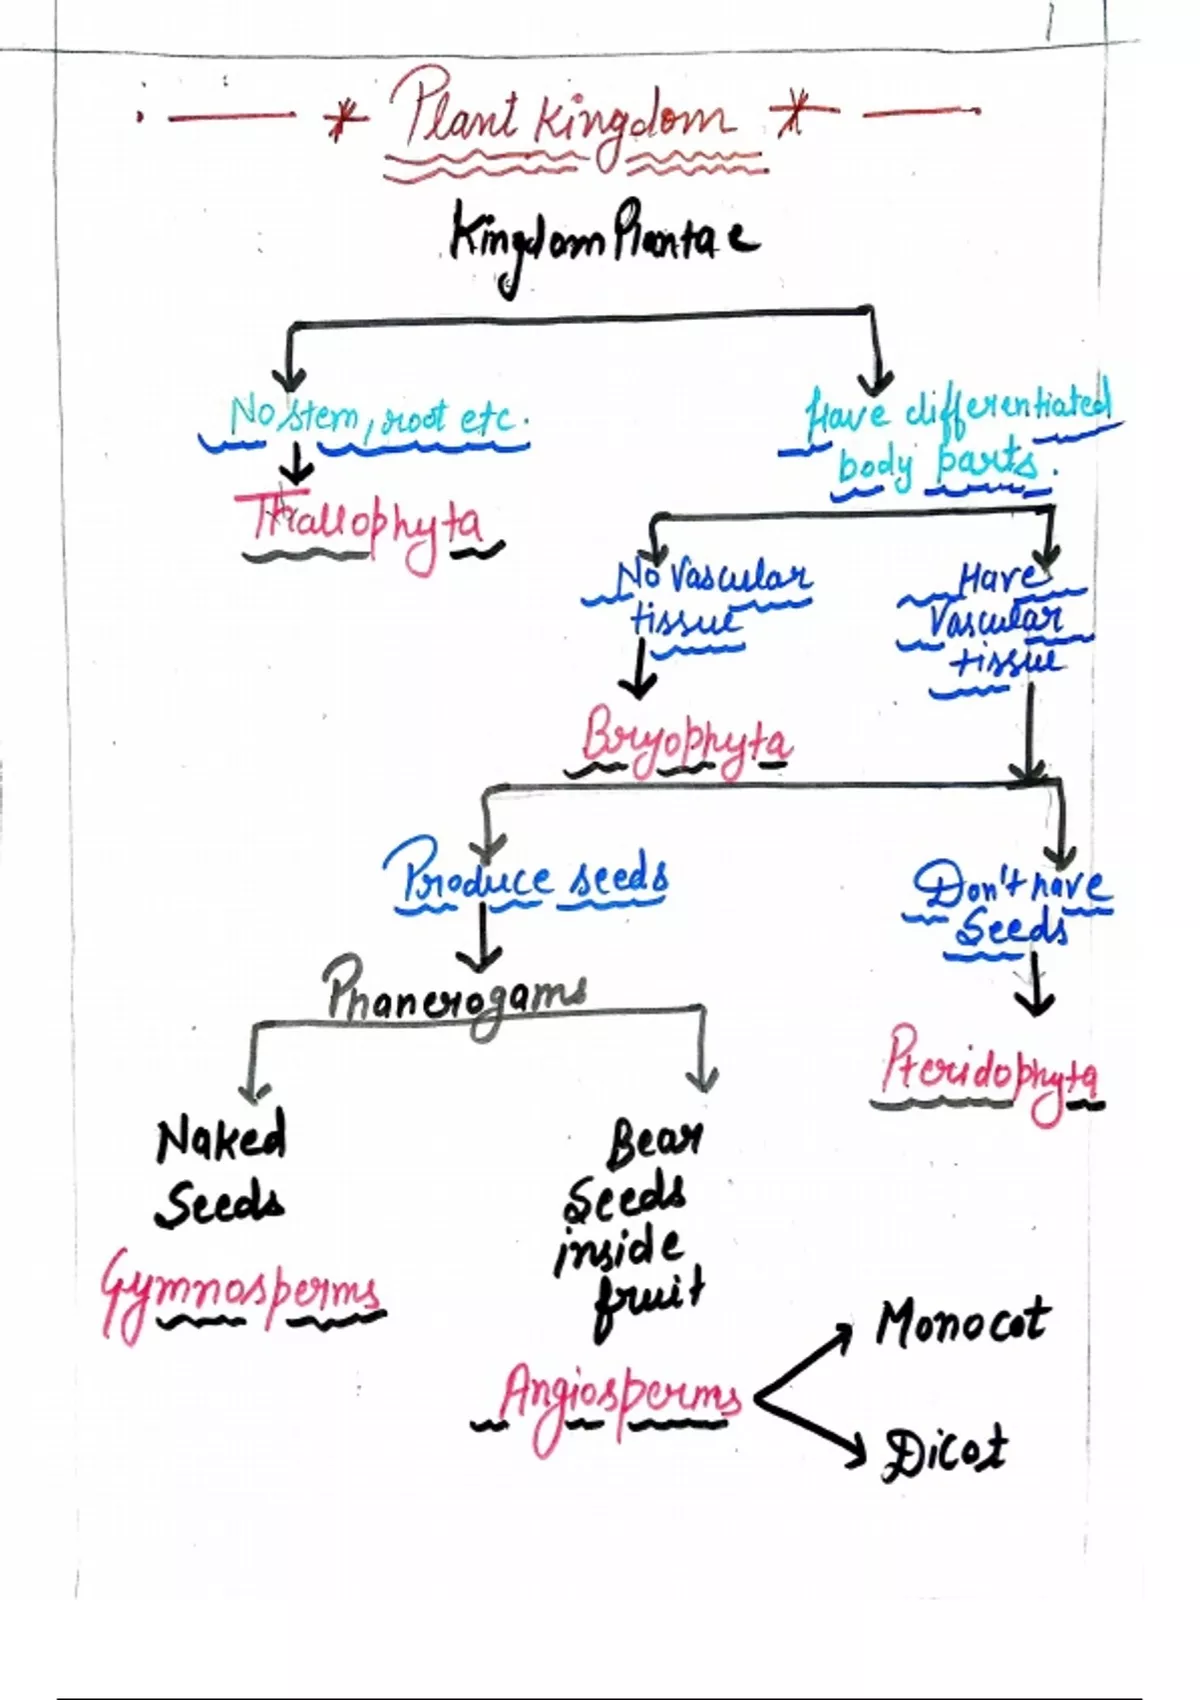 1
Plant Kingdom
Kingdom Plantae
No stem, root etc.
Have differentiated
body parts.
Thallophyta
No Vascular
tissue
Have
Vascular
tissue
Bryophyta
Produce seeds
Don't have
Seeds
Phanerogams
Pteridophyta
Naked
Seeds
Gymnosperms
Bear
Seeds
inside
fruit
Angiosperms
Monocot
Dicot